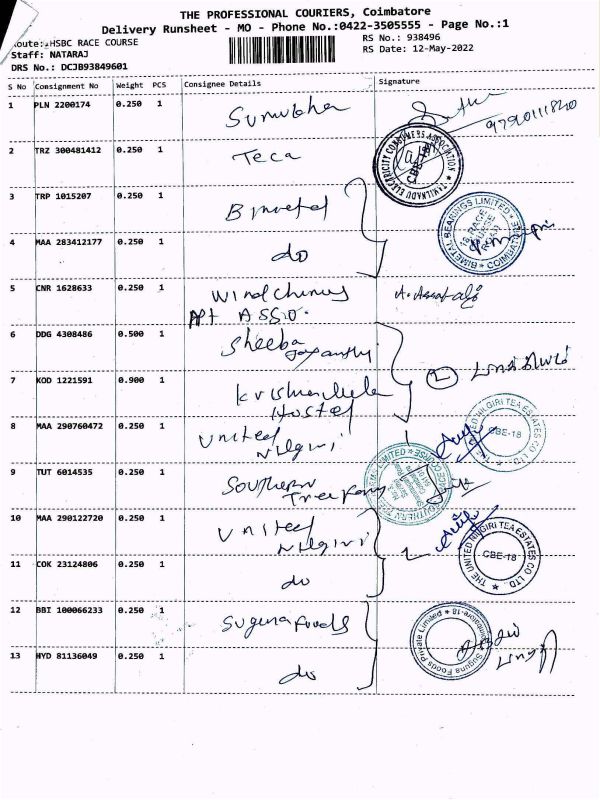 THE PROFESSIONAL COURIERS, Coimbatore
Delivery Runsheet - MO - Phone No.:0422-3505555 - Page No.:1
Route: HSBC RACE COURSE
RS No.: 938496
Staff: NATARAJ
RS Date: 12-May-2022
DRS No.: DCJB93849601
S No Consignment No Weight PCS Consignee Details Signature
1 PLN 2200174 0.250 1
2 TRZ 300481412 0.250 1 Teca
TAMILNADU ELECTRICITY CONSUMERS ASSOCIATION
CBE-18
3 TRP 1015207 0.250 1 Bimetal
BIMETAL BEARINGS LIMITED
COIMBATORE
4 MAA 283412177 0.250 1 do
5 CNR 1628633 0.250 1 Windchimes
Apt ASSO.
6 DDG 4308486 0.500 1 Sheeba
Jayanthy
7 KOD 1221591 0.900 1
Hostel
8 MAA 290760472 0.250 1 United
Nilgiri
THE UNITED NILGIRI TEA ESTATES CO LTD
CBE-18
9 TUT 6014535 0.250 1 Southern
10 MAA 290122720 0.250 1 United
Nilgiri
THE UNITED NILGIRI TEA ESTATES CO LTD
CBE-18
11 COK 23124806 0.250 1 do
12 BBI 100066233 0.250 1 Suguna foods
Suguna Foods Private Limited
13 HYD 81136049 0.250 1 do